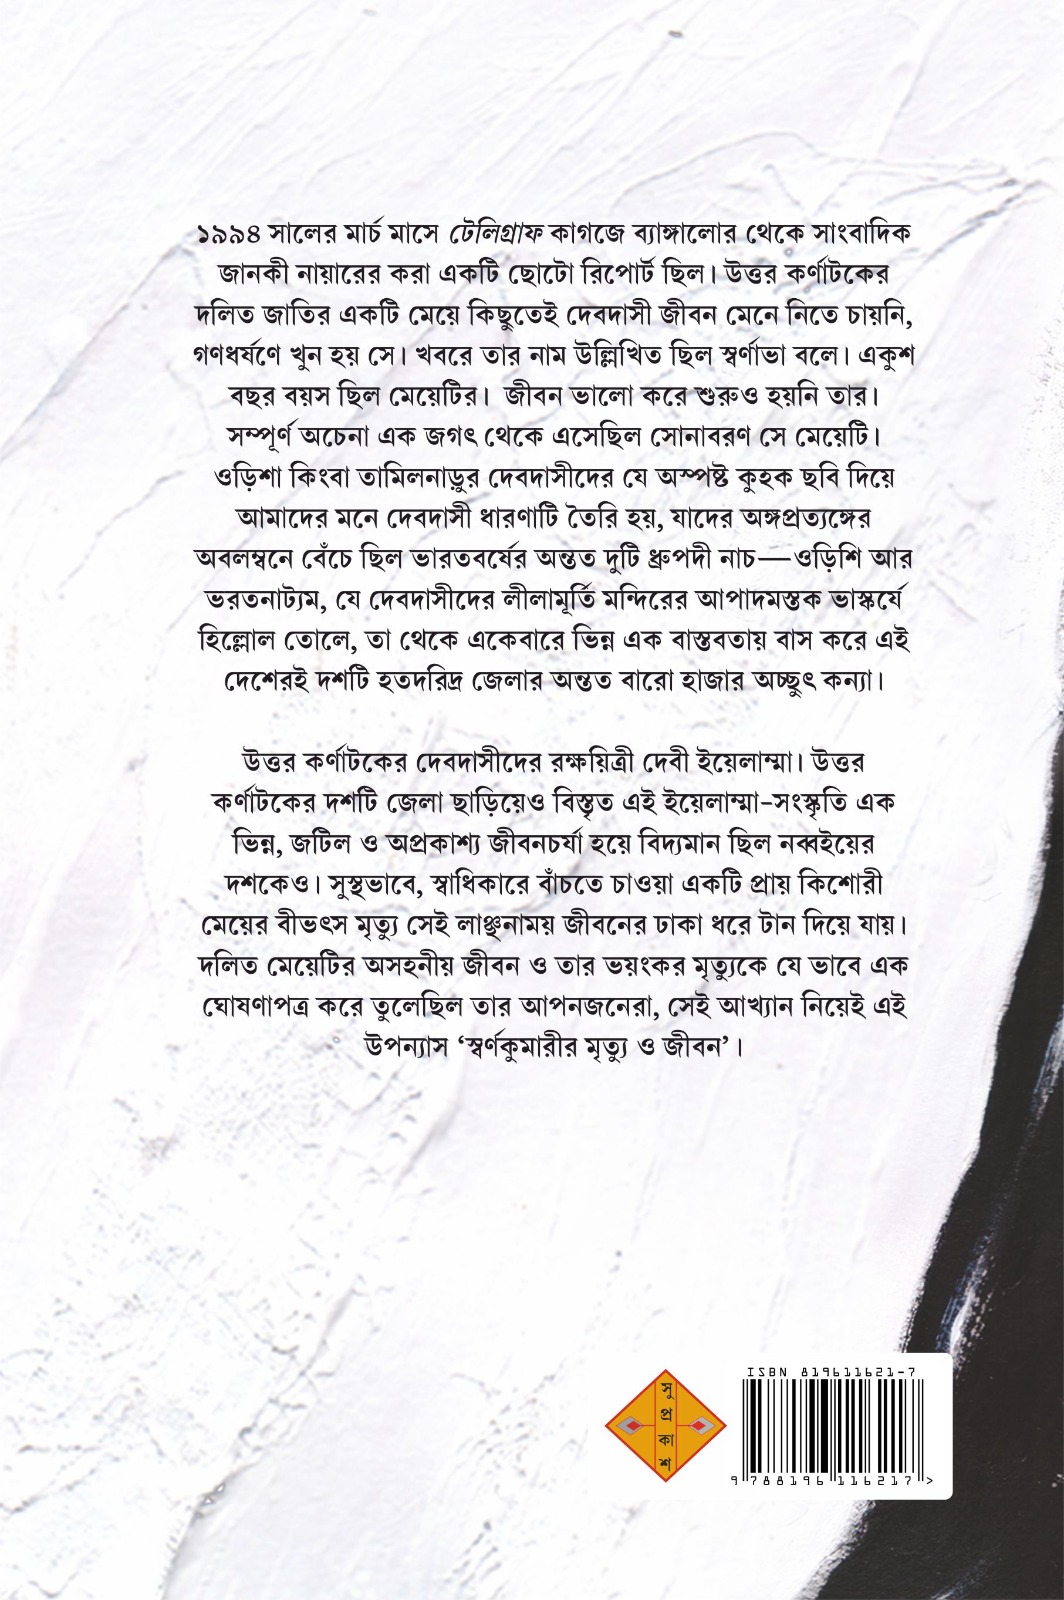 ১৯৯৪ সালের মার্চ মাসে টেলিগ্রাফ কাগজে ব্যাঙ্গালোর থেকে সাংবাদিক
জানকী নায়ারের করা একটি ছোটো রিপোর্ট ছিল। উত্তর কর্ণাটকের
দলিত জাতির একটি মেয়ে কিছুতেই দেবদাসী জীবন মেনে নিতে চায়নি,
গণধর্ষণে খুন হয় সে। খবরে তার নাম উল্লিখিত ছিল স্বর্ণাভা বলে। একুশ
বছর বয়স ছিল মেয়েটির। জীবন ভালো করে শুরুও হয়নি তার।
সম্পূর্ণ অচেনা এক জগৎ থেকে এসেছিল সোনাবরণ সে মেয়েটি।
ওড়িশা কিংবা তামিলনাড়ুর দেবদাসীদের যে অস্পষ্ট কুহক ছবি দিয়ে
আমাদের মনে দেবদাসী ধারণাটি তৈরি হয়, যাদের অঙ্গপ্রত্যঙ্গের
অবলম্বনে বেঁচে ছিল ভারতবর্ষের অন্তত দুটি ধ্রুপদী নাচ—ওড়িশি আর
ভরতনাট্যম, যে দেবদাসীদের লীলামূর্তি মন্দিরের আপাদমস্তক ভাস্কর্যে
হিল্লোল তোলে, তা থেকে একেবারে ভিন্ন এক বাস্তবতায় বাস করে এই
দেশেরই দশটি হতদরিদ্র জেলার অন্তত বারো হাজার অচ্ছুৎ কন্যা।
উত্তর কর্ণাটকের দেবদাসীদের রক্ষয়িত্রী দেবী ইয়েলাম্মা। উত্তর
কর্ণাটকের দশটি জেলা ছাড়িয়েও বিস্তৃত এই ইয়েলাম্মা-সংস্কৃতি এক
ভিন্ন, জটিল ও অপ্রকাশ্য জীবনচর্যা হয়ে বিদ্যমান ছিল নব্বইয়ের
দশকেও। সুস্থভাবে, স্বাধিকারে বাঁচতে চাওয়া একটি প্রায় কিশোরী
মেয়ের বীভৎস মৃত্যু সেই লাঞ্ছনাময় জীবনের ঢাকা ধরে টান দিয়ে যায়।
দলিত মেয়েটির অসহনীয় জীবন ও তার ভয়ংকর মৃত্যুকে যে ভাবে এক
ঘোষণাপত্র করে তুলেছিল তার আপনজনেরা, সেই আখ্যান নিয়েই এই
উপন্যাস ‘স্বর্ণকুমারীর মৃত্যু ও জীবন’।
ISBN 819611621-7
সু
প্র
কা
শ
9 788196 116217 >